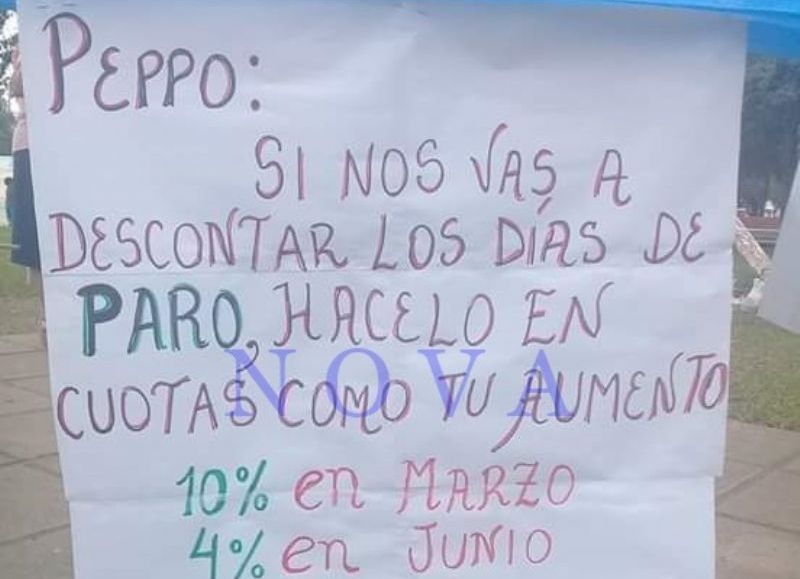 PEPPO:
SI NOS VAS A
DESCONTAR LOS DÍAS DE
PARO, HACELO EN
NOVA
CUOTAS COMO TU AUMENTO
10% en MARZO
4% en JUNIO